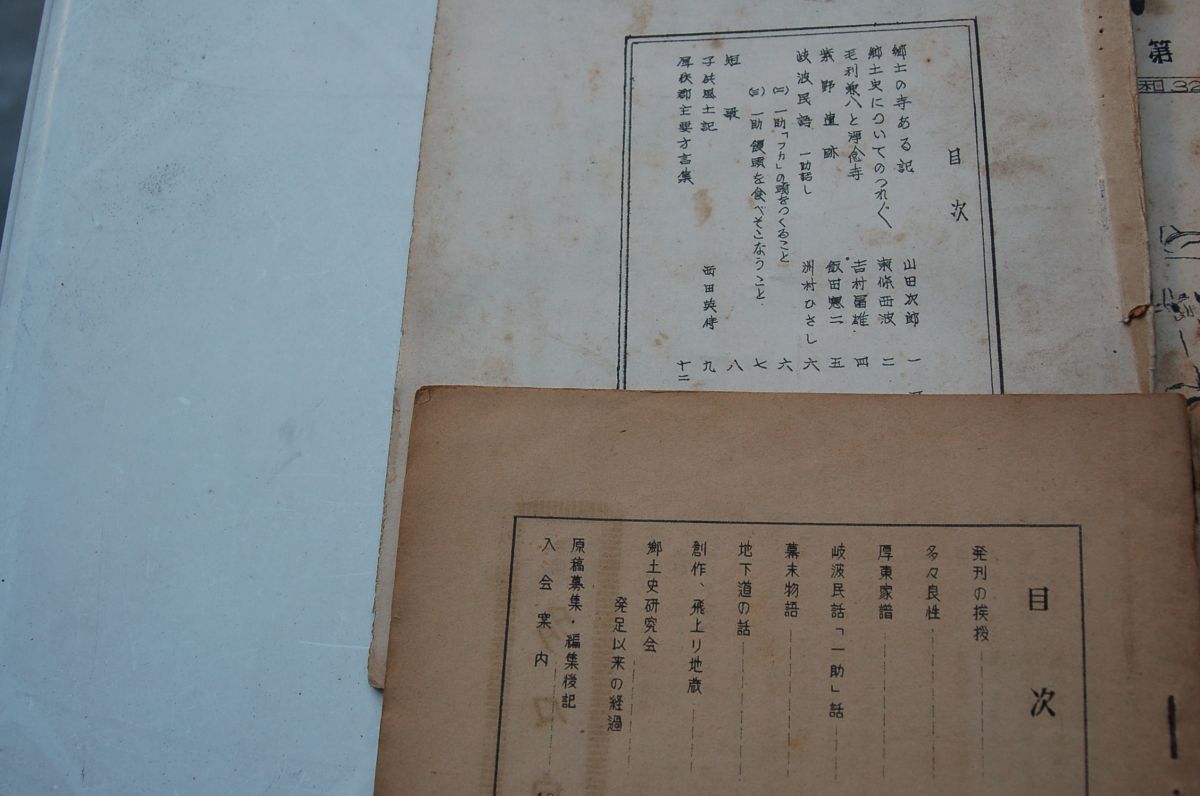 目次
郷土の寺ある記 山田次郎 一
郷土史についてのつれ〴〵 東條西波 二
毛利兼八と浄念寺 吉村冨雄 四
紫野遺跡 飯田憲二 五
岐波民話 一助話し 洲村ひさし 六
(二) 一助「フカ」の頭をつくること 六
(三) 一助 饅頭を食べそこなうこと 七
短歌 八
子供風土記 西田英侍 九
厚狭郡主要方言集 十二
第
和32
目次
発刊の挨授
多々良性
厚東家譜
岐波民話「一助」話
幕末物語
地下道の話
創作、飛上り地蔵
郷土史研究会
発足以来の経過
原稿募集・編集後記
入会案内